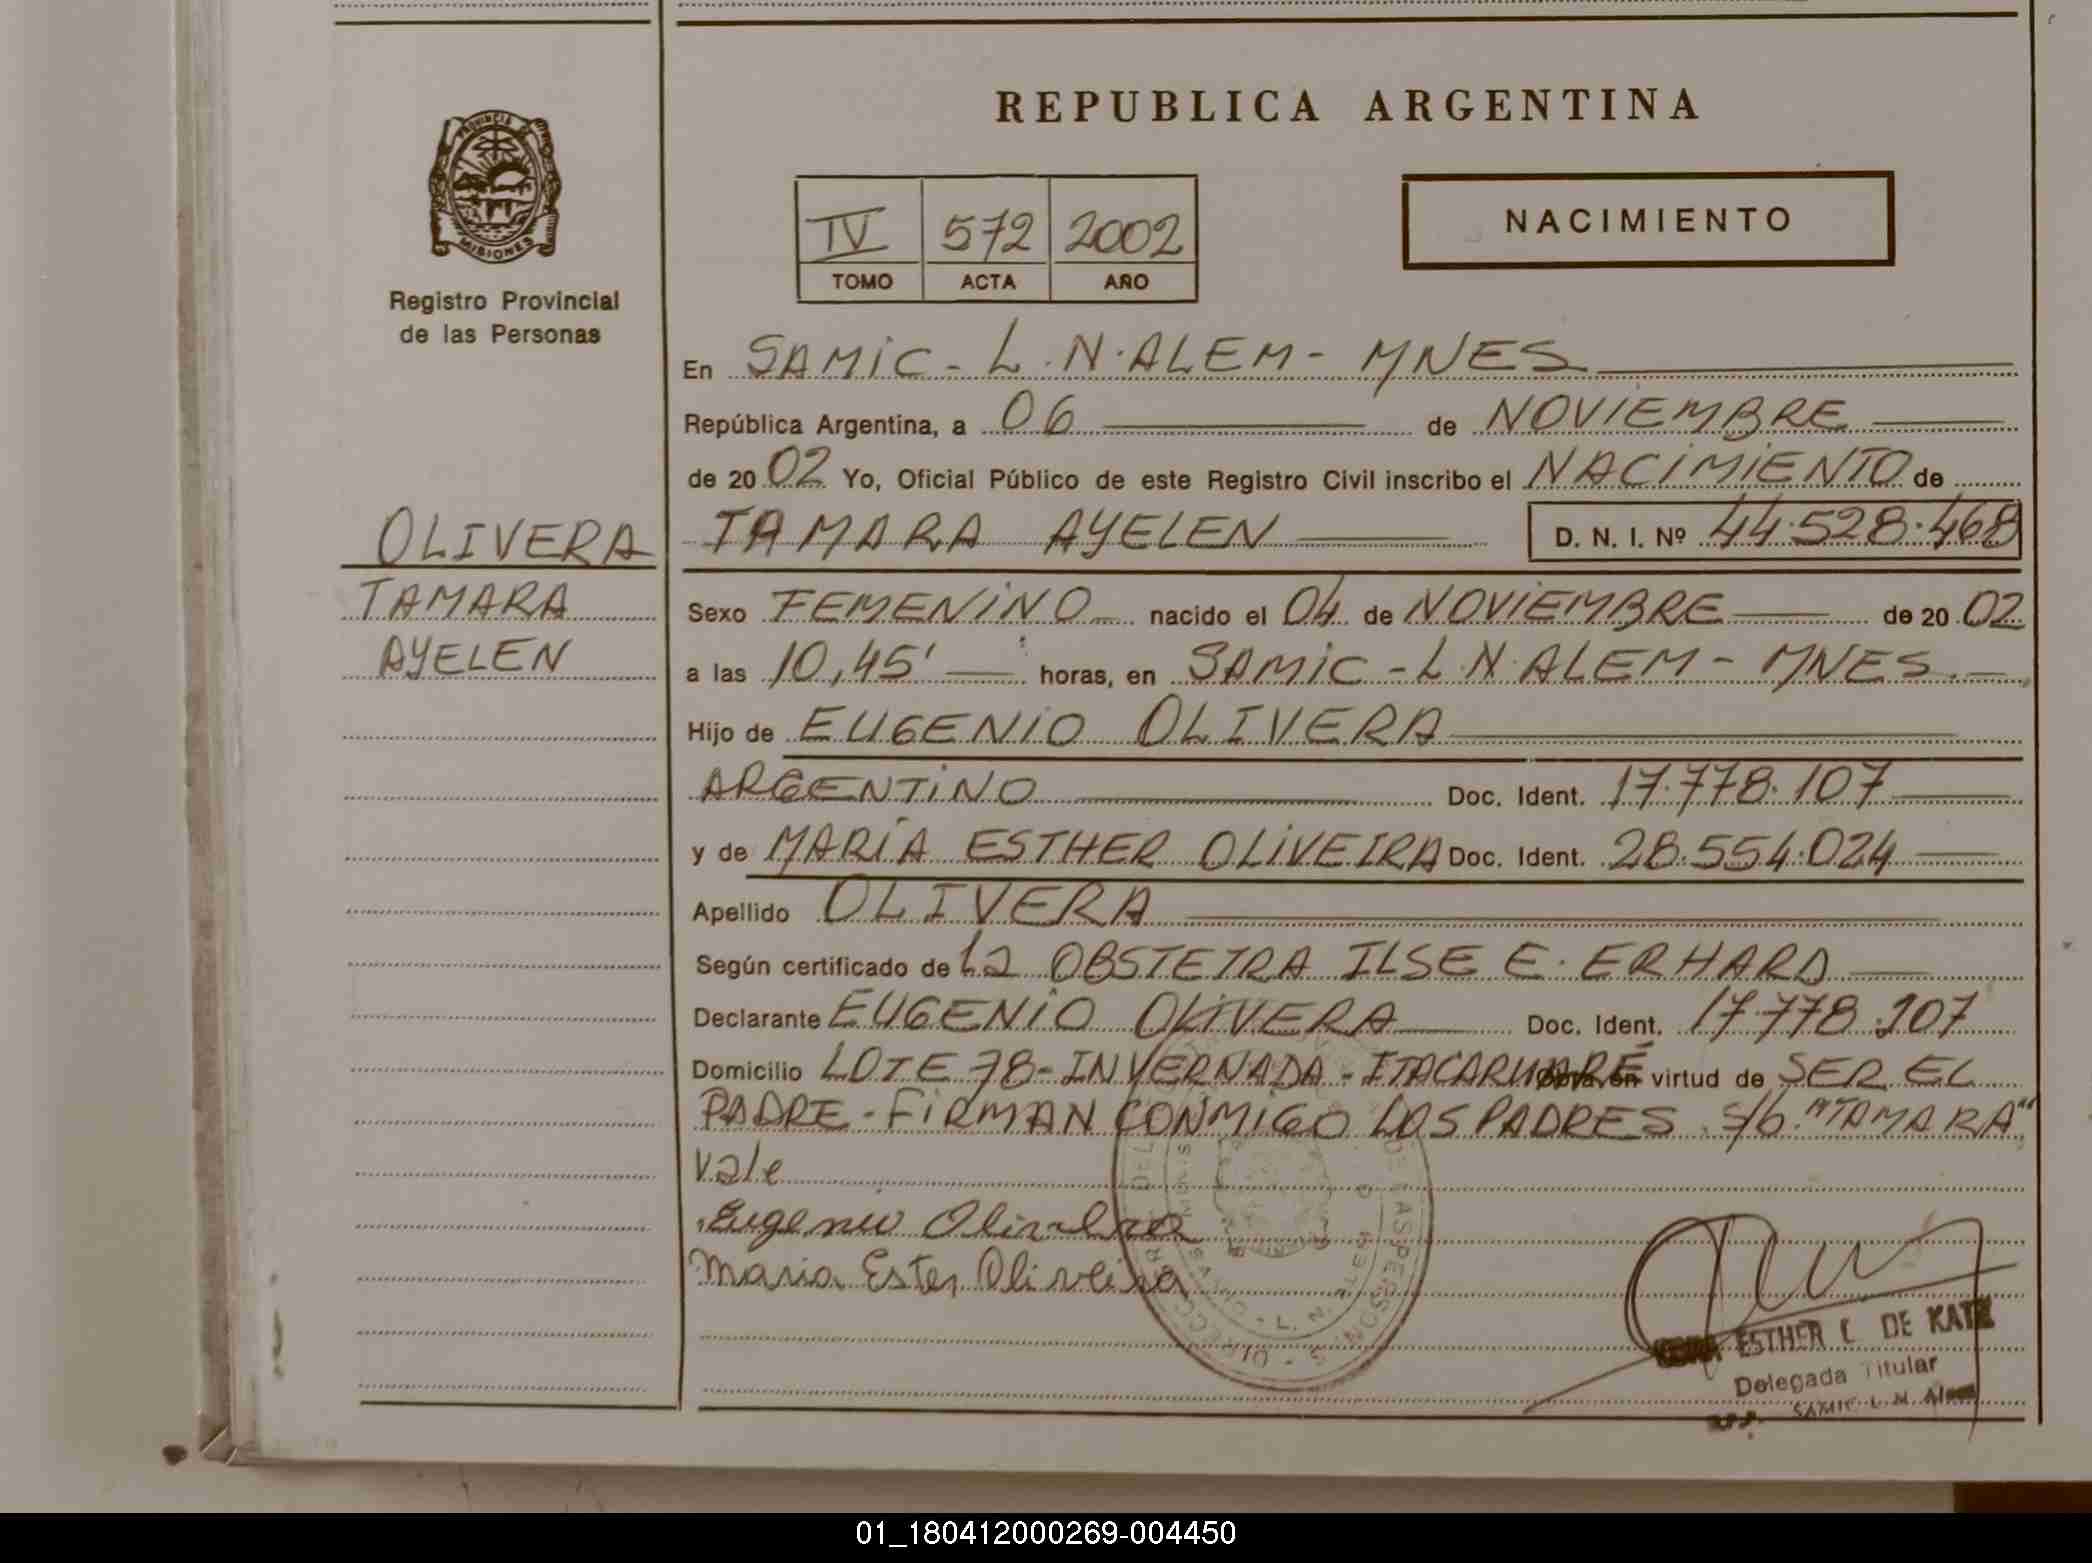 REPUBLICA ARGENTINA
PROVINCIA DE
MISIONES
Registro Provincial
de las Personas
IV 572 2002
TOMO ACTA AÑO
NACIMIENTO
En SAMIC - L.N. ALEM - MNES
República Argentina, a 06 de NOVIEMBRE
de 2002 Yo, Oficial Público de este Registro Civil inscribo el NACIMIENTO de
OLIVERA
TAMARA
AYELEN
TAMARA AYELEN D. N. I. Nº 44.528.468
Sexo FEMENINO nacido el 04 de NOVIEMBRE de 2002
a las 10,45' horas, en SAMIC - L.N. ALEM - MNES.
Hijo de EUGENIO OLIVERA
ARGENTINO Doc. Ident. 17.778.107
y de MARÍA ESTHER OLIVEIRA Doc. Ident. 28.554.024
Apellido OLIVERA
Según certificado de la OBSTETRA ILSE E. ERHARD
Declarante EUGENIO OLIVERA Doc. Ident. 17.778.107
Domicilio LOTE 78 - INVERNADA - ITACARUARÉ Obra en virtud de SER EL
PADRE - FIRMAN CONMIGO LOS PADRES. S/b. "TAMARA"
Vale
Eugenio Olivera
Maria Ester Oliveira
ESTHER C. DE KATZ
Delegada Titular
SAMIC L. N. Alem
01_180412000269-004450